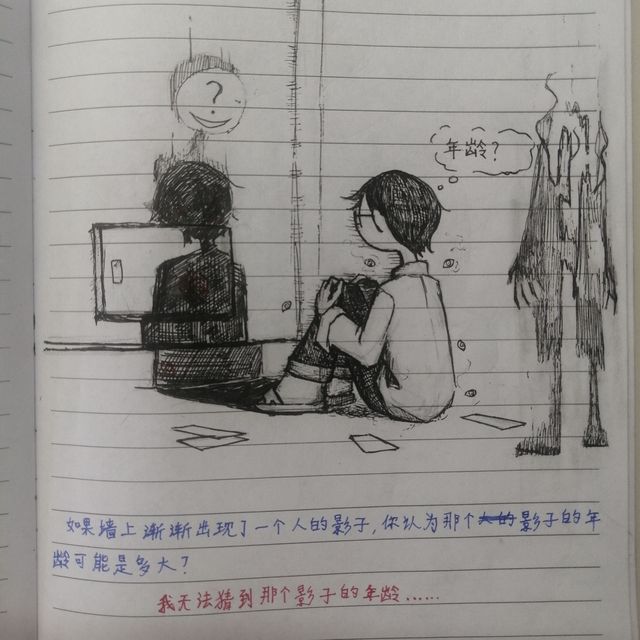 ?
年龄?
如果墙上渐渐出现了一个人的影子,你认为那个影子的年
龄可能是多大?
我无法猜到那个影子的年龄......